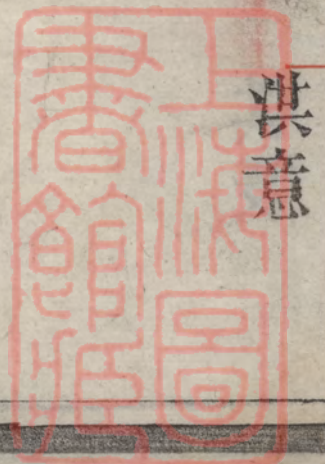 洪意
上海圖
書館藏